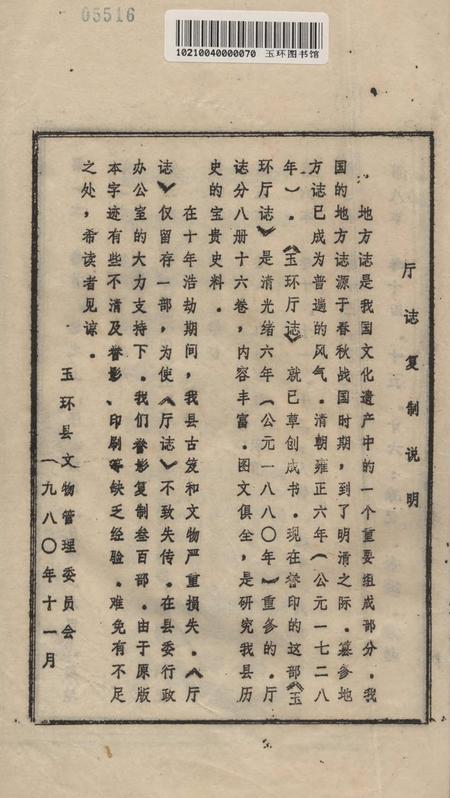 05516
10210040000070 玉环图书馆
厅志复制说明
地方志是我国文化遗产中的一个重要组成部分。我
国的地方志源于春秋战国时期，到了明清之际。纂修地
方志已成为普遍的风气。清朝雍正六年（公元一七二八
年）。《玉环厅志》就已草创成书。现在誊印的这部《玉
环厅志》是清光绪六年（公元一八八〇年）重修的。厅
志分八册十六卷，内容丰富。图文俱全，是研究我县历
史的宝贵史料。
在十年浩劫期间，我县古笈和文物严重损失。《厅
志》仅留存一部，为使《厅志》不致失传。在县委行政
办公室的大力支持下。我们誊影复制叁百部。由于原版
本字迹有些不清及誊影、印刷等缺乏经验。难免有不足
之处，希读者见谅。
玉环县文物管理委员会
一九八〇年十一月